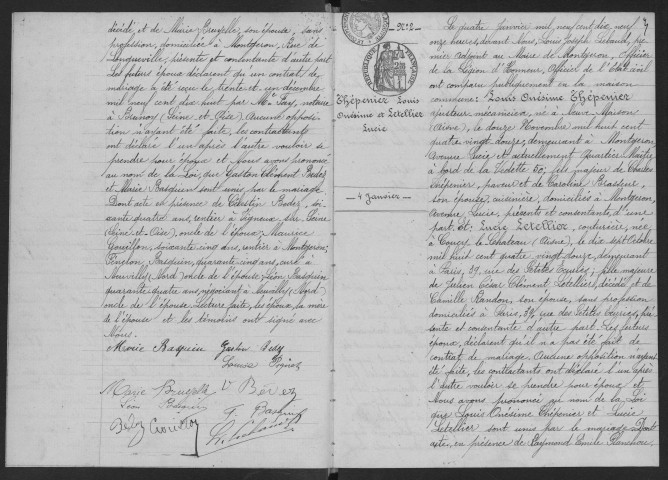 décédé, et de Marie Bruyelle, son épouse, sans
profession, domiciliée à Montgeron, Rue de
Longueville, présente et consentante d'autre part.
Les futurs époux déclarent qu'un contrat de
mariage a été reçu le trente et un décembre
mil neuf cent dix huit par Me Fay, notaire
à Brunoy (Seine et Oise) Aucune opposi-
tion n'ayant été faite, les contractants
ont déclaré l'un après l'autre vouloir se
prendre pour époux et Nous avons prononcé
au nom de la Loi, que Gaston Clément Bedez
et Marie Basquin sont unis par le mariage
Dont acte en présence de Célestin Bedez, soi-
xante quatre ans, rentier à Vigneux sur Seine
(Seine et Oise), oncle de l'époux; Maurice
Gouillon, soixante cinq ans, rentier à Montgeron;
Fénelon Basquin, quarante cinq ans, curé à
Neuvilly (Nord) oncle de l'épouse; Léon Basquin
quarante quatre ans, négociant à Neuvilly (Nord)
oncle de l'épouse. Lecture faite, les époux, la mère
de l'épouse et les témoins ont signé avec
Nous.
Marie Basquin Gaston Bedez
Louise
Marie Bruyelle
Léon
N°2
RÉPUBLIQUE FRANÇAISE
Thépenier Louis
Onésime et Letellier
Lucie
4 Janvier
Le quatre Janvier mil neuf cent dix neuf
onze heures, devant Nous, Louis Joseph , pre-
mier adjoint au Maire de Montgeron, Officier
de la Légion d'Honneur, Officier de l'Etat civil
ont comparu publiquement en la maison
commune: Louis Onésime Thépenier
ajusteur mécanicien, né à Neuve Maison
(Aisne), le douze Novembre mil huit cent
quatre vingt douze, demeurant à Montgeron,
Avenue Lucie et actuellement Quartier Maître
à bord de la Vedette 60, fils majeur de Charles
Thépenier, paveur et de Caroline Brasseur,
son épouse, cuisinière, domiciliés à Montgeron,
Avenue Lucie, présents et consentants, d'une
part. Et: Lucie Letellier, couturière, née
à Coucy le Château (Aisne), le dix sept Octobre
mil huit cent quatre vingt douze, demeurant
à Paris, 39, rue des Petites Ecuries, fille majeure
de Julien César Clément Letellier, décédé et de
Camille Randon, son épouse, sans profession
domiciliée à Paris, 39, rue des Petites Ecuries, pré-
sente et consentante d'autre part. Les futurs
époux, déclarent qu'il n'a pas été fait de
contrat de mariage. Aucune opposition n'ayant
été faite, les contractants ont déclaré l'un après
l'autre vouloir se prendre pour époux et
Nous avons prononcé au nom de la Loi
que Louis Onésime Thépenier et Lucie
Letellier sont unis par le mariage Dont
acte, en présence de Raymond Emile Planchou,